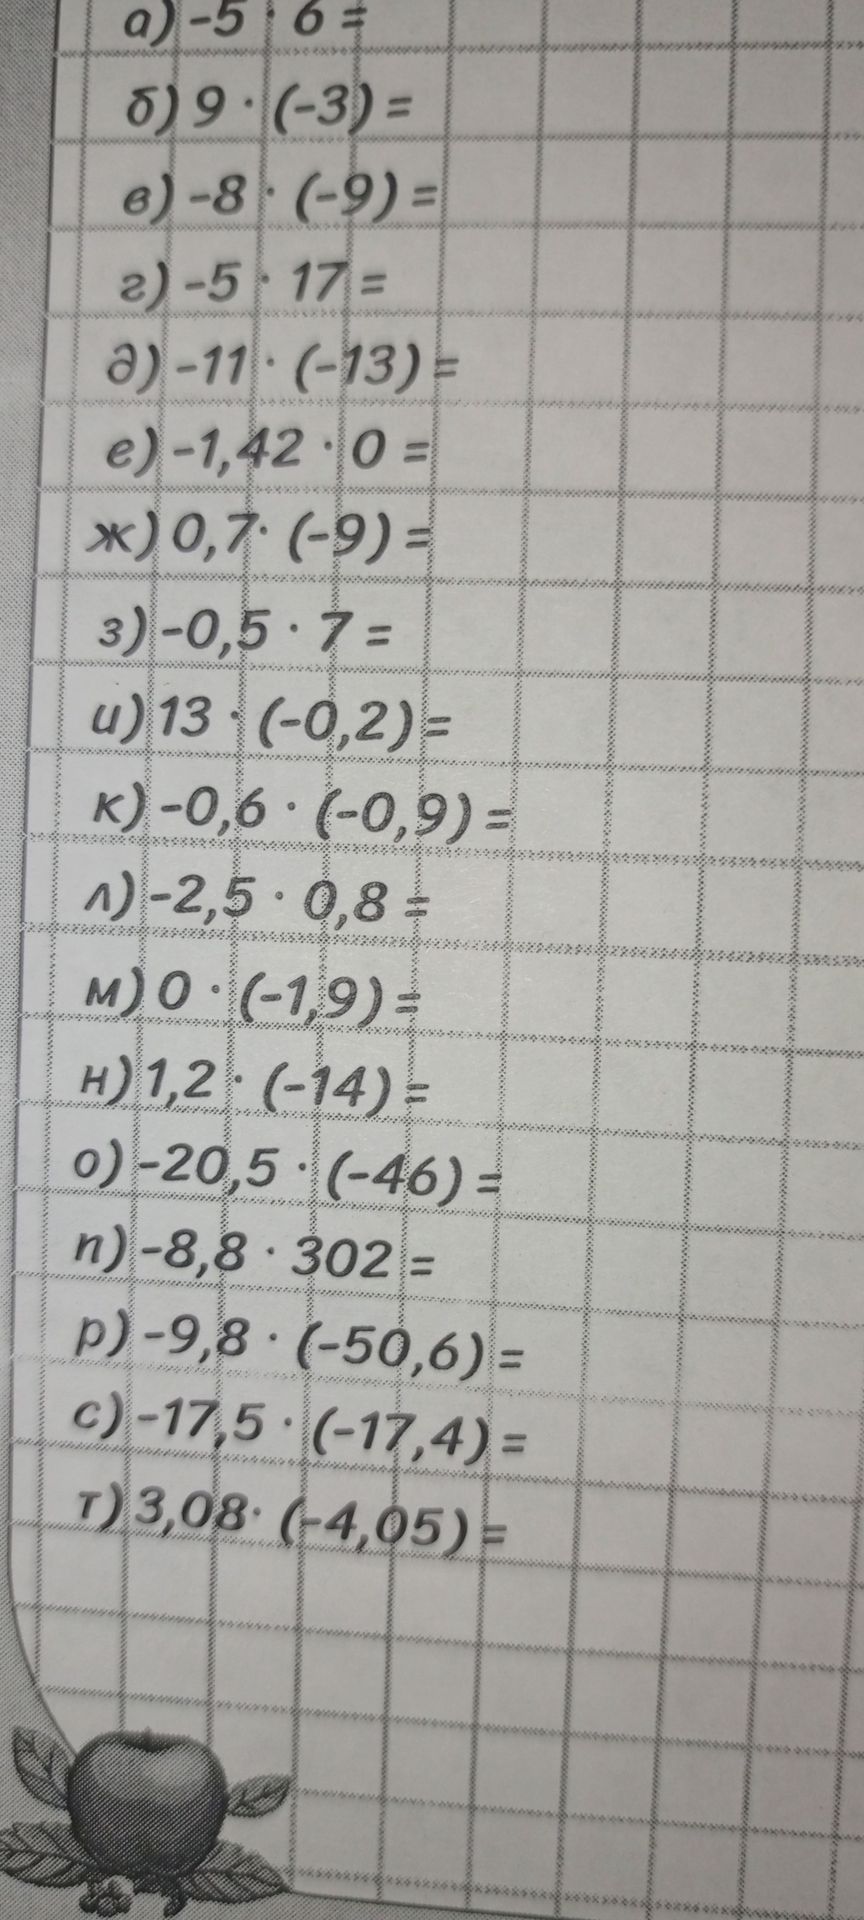 а) -5 · 6 =
б) 9 · (-3) =
в) -8 · (-9) =
г) -5 · 17 =
д) -11 · (-13) =
е) -1,42 · 0 =
ж) 0,7· (-9) =
з) -0,5 · 7 =
и) 13 · (-0,2) =
к) -0,6 · (-0,9) =
л) -2,5 · 0,8 =
м) 0 · (-1,9) =
н) 1,2 · (-14) =
о) -20,5 · (-46) =
п) -8,8 · 302 =
р) -9,8 · (-50,6) =
с) -17,5 · (-17,4) =
т) 3,08· (-4,05) =